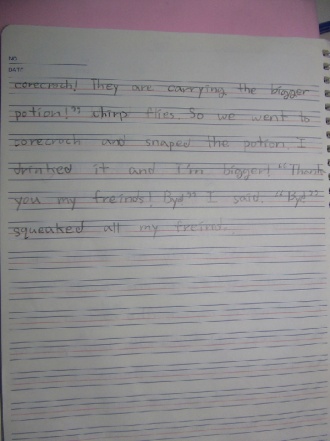 NO
DATE
corecroch! They are carrying the biogger
potion!" chirp flies. So we went to
corecroch and snaped the potion. I
drinked it and I'm bigger! "Thank
you my freinds! Bye" I said. "Bye"
squeaked all my freind.